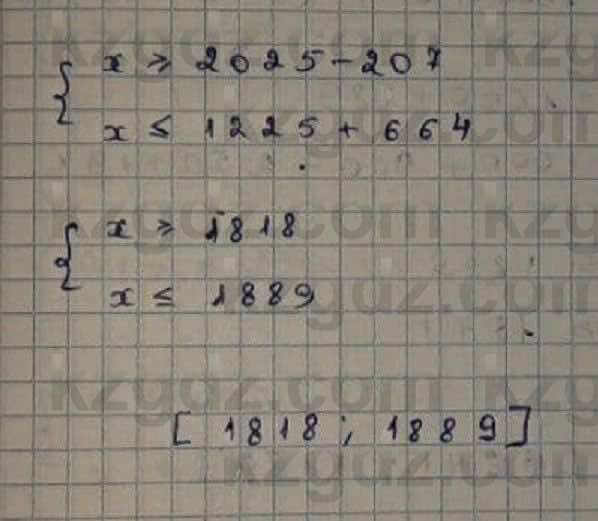 { x ≥ 2025 - 207
x ≤ 1225 + 664
{ x ≥ 1818
x ≤ 1889
[ 1818 ; 1889 ]
kzgdz.com